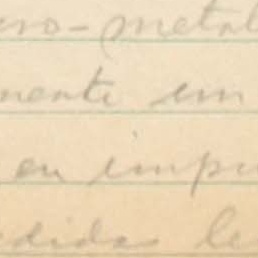 ro-metal
mente em
en impu
edidas le